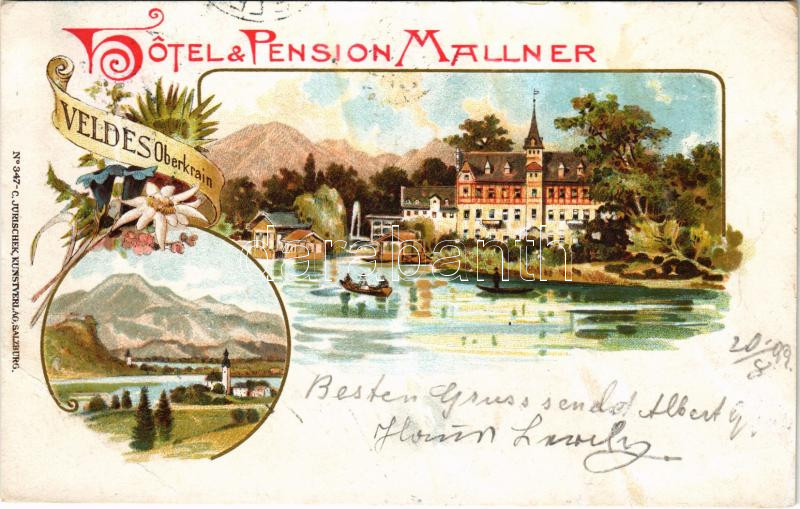 HÔTEL & PENSION MALLNER
VELDES Oberkrain
No 347 - C. JURISCHEK, KUNSTVERLAG, SALZBURG.
darabanth
20/8 99.
Besten Gruss sendet Albert